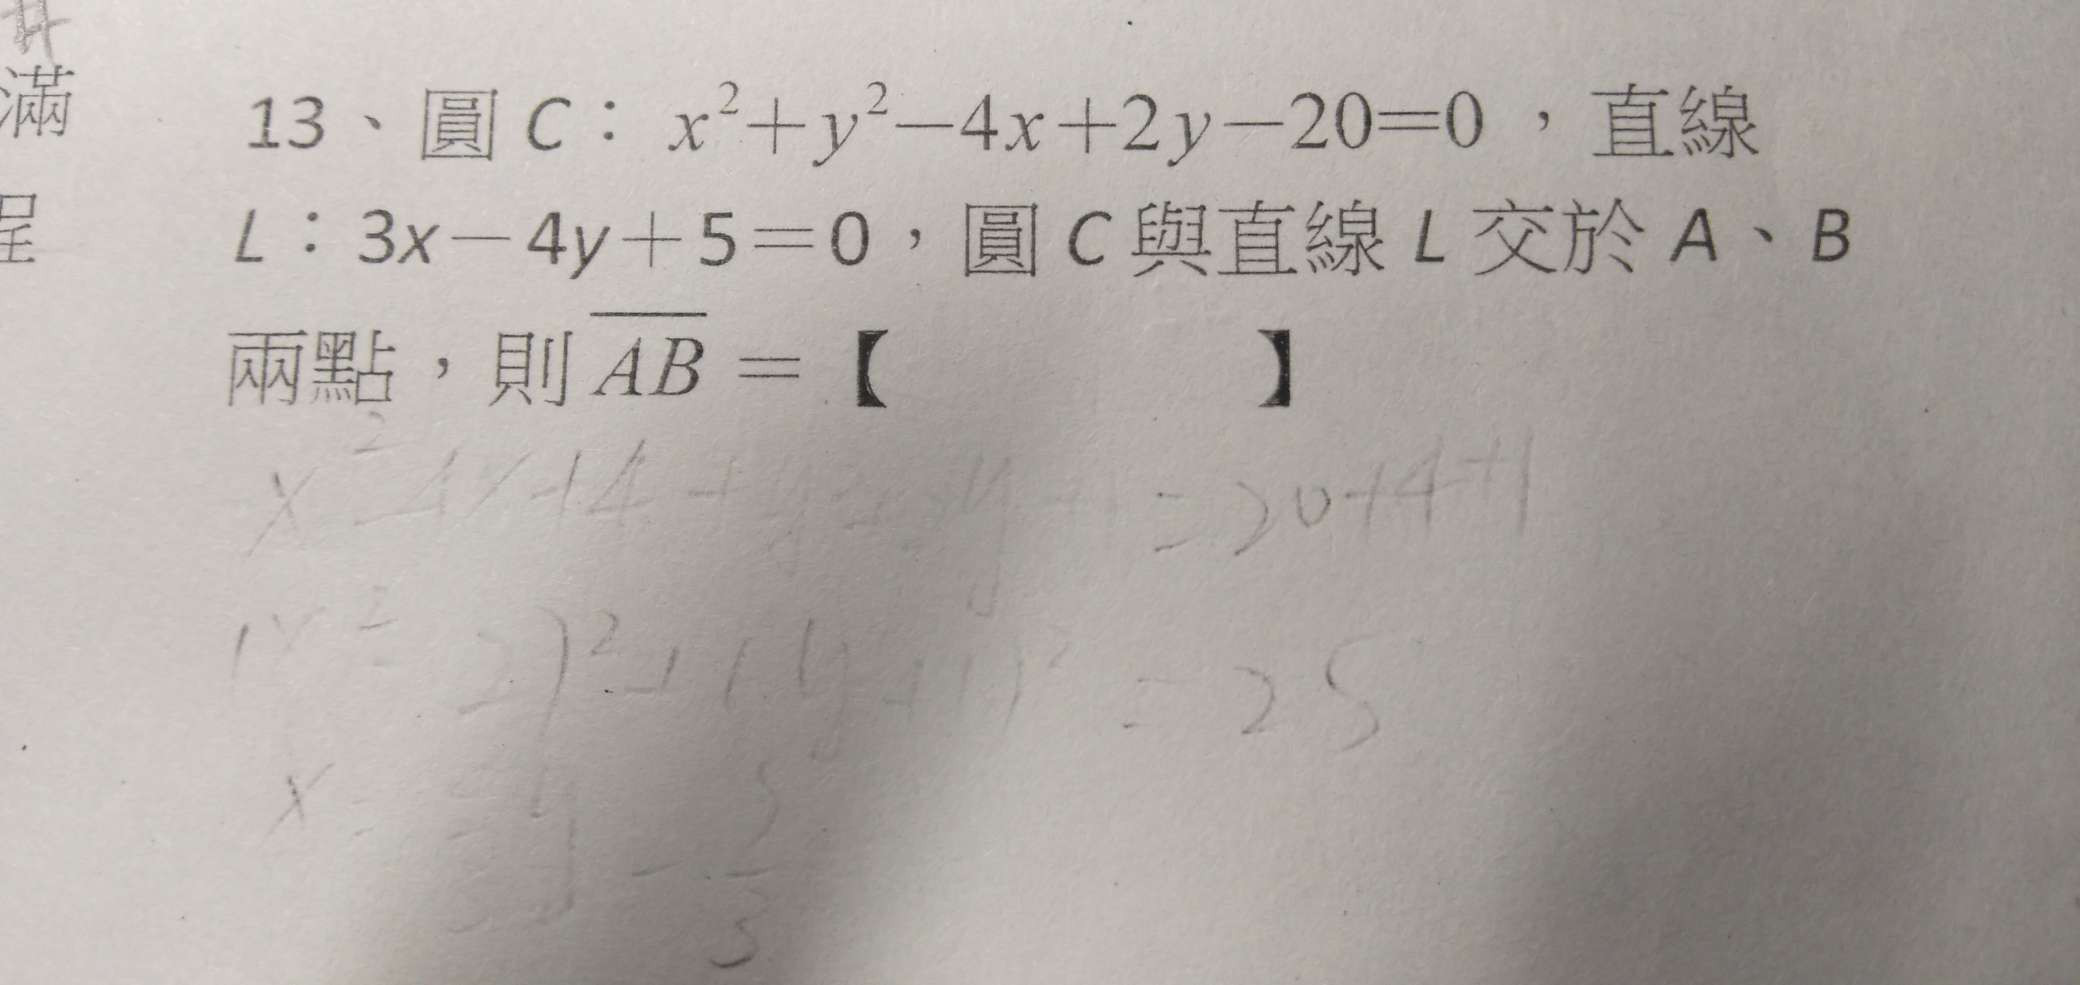 滿
程
13、圓 C： x²+y²−4x+2y−20=0 ，直線
L：3x−4y+5=0，圓 C 與直線 L 交於 A、B
兩點，則 \overline{AB} =【 】
x²-4x+4+y²+2y+1=20+4+1
(x-2)²+(y+1)²=25